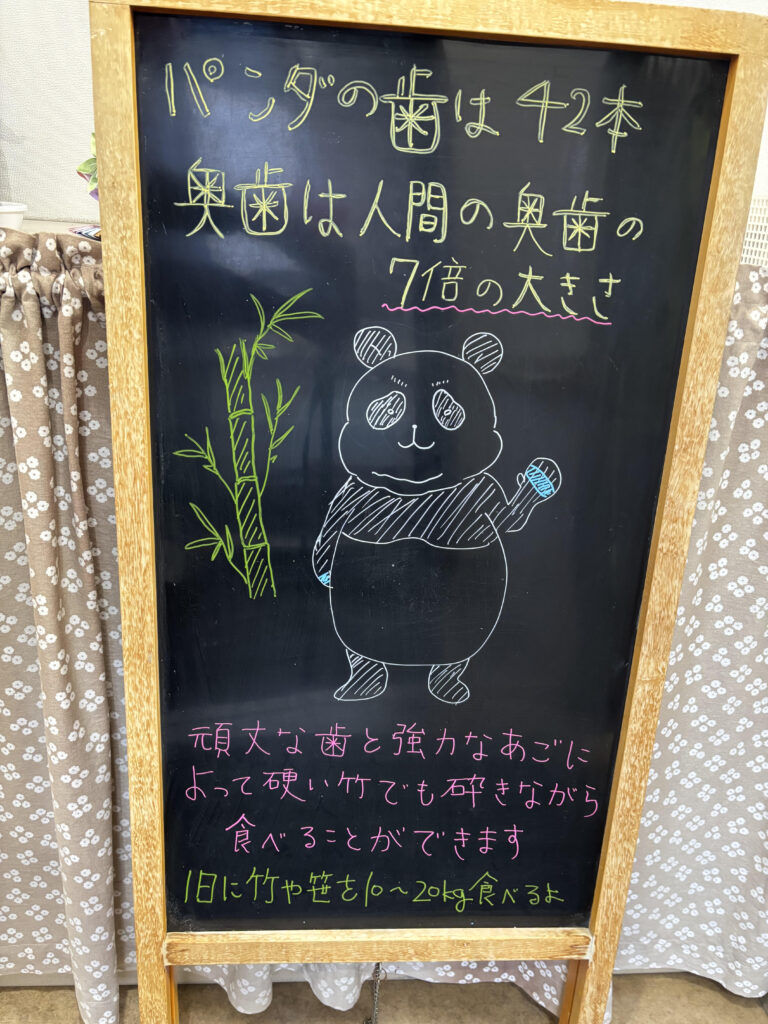 パンダの歯は42本
奥歯は人間の奥歯の
7倍の大きさ
頑丈な歯と強力なあごに
よって硬い竹でも砕きながら
食べることができます
1日に竹や笹を10～20kg食べるよ